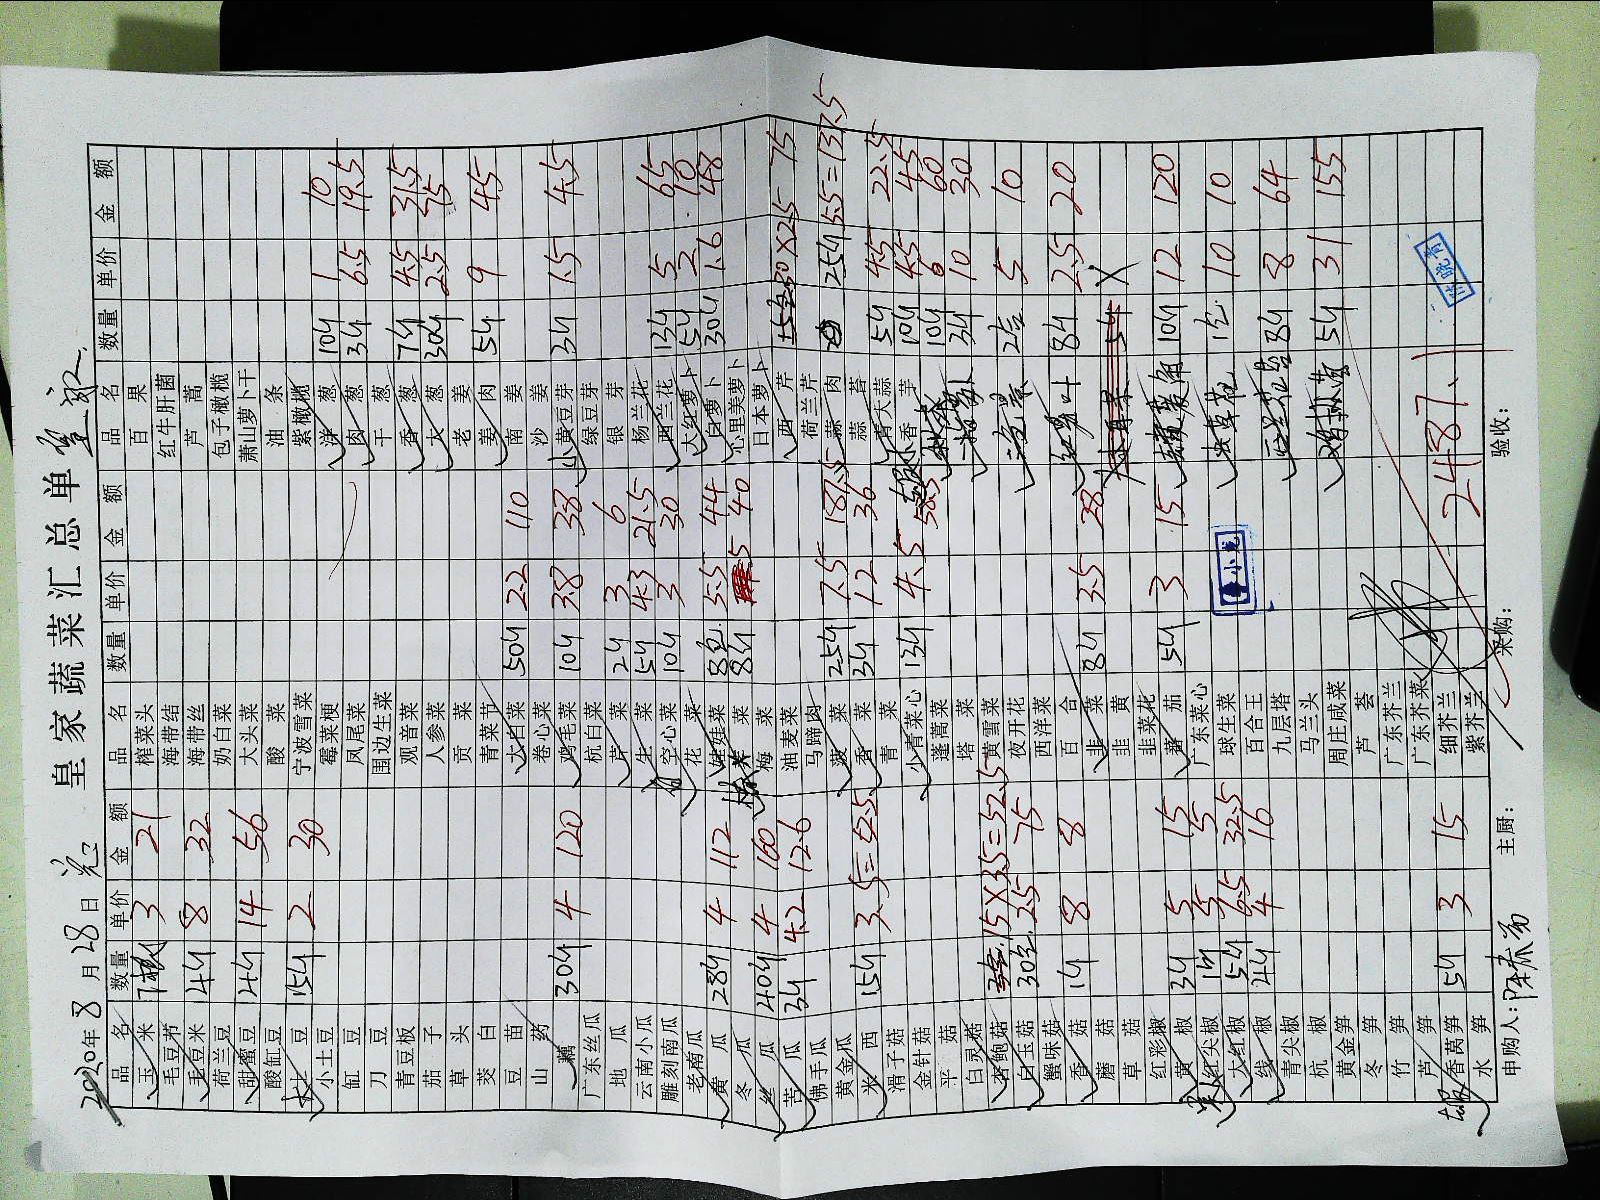 2020年8月28日 皇家蔬菜汇总单
品名 数量 单价 金额 品名 数量 单价 金额 品名 数量 单价 金额
玉米 7根 3 21 榨菜头 百果
毛豆节 海带结 红牛肝菌
毛豆米 4斤 8 32 海带丝 芦蒿
荷兰豆 奶白菜 包子橄榄
甜蜜豆 4斤 14 56 大头菜 萧山萝卜干
酸缸豆 酸菜 油条
土豆 15斤 2 30 宁波雪菜 紫橄榄
小土豆 霉菜梗 洋葱 10斤 1 10
缸豆 凤尾菜 肉葱 3斤 6.5 19.5
刀豆 围边生菜 干葱
青豆板 观音菜 香葱 7斤 4.5 31.5
茄子 人参菜 大葱 30斤 2.5 75
草头 贡菜 老姜
茭白 青菜节 姜肉 5斤 9 45
豆苗 大白菜 50斤 2.2 110 南姜
山药 卷心菜 沙姜
藕 30斤 4 120 鸡毛菜 10斤 3.8 38 小黄豆芽 3斤 1.5 4.5
广东丝瓜 杭白菜 绿豆芽
地瓜 芹菜 2斤 3 6 银芽
云南小瓜 生菜 5斤 4.3 21.5 杨兰花
雕刻南瓜 空心菜 10斤 3 30 西兰花 13斤 5 65
老南瓜 花菜 大红萝卜 5斤 2 10
黄瓜 28斤 4 112 娃娃菜 8包 5.5 44 白萝卜 30斤 1.6 48
冬瓜 荠菜 8斤 5 40 心里美萝卜
丝瓜 40斤 4 160 梅菜 日本萝卜
苦瓜 3斤 4.2 12.6 油麦菜 西芹 30×2.5 75
佛手瓜 马蹄肉 荷兰芹
黄金瓜 菠菜 25斤 7.5 187.5 蒜肉 25斤 5.5=137.5
米西 15斤 3.5=52.5 香菜 3斤 12 36 蒜苔
滑子菇 青菜 青大蒜 5斤 4.5 22.5
金针菇 小青菜心 13斤 4.5 58.5 香芋 10斤 4.5 45
平菇 蓬蒿菜 10斤 6 60
白灵菇 塔菜 3斤 10 30
杏鲍菇 15×3.5=52.5 黄雪菜
白玉菇 30包 2.5 75 夜开花 2包 5 10
蟹味菇 西洋菜
香菇 1斤 8 8 百合 8斤 2.5 20
蘑菇 韭菜 8斤 3.5 28
草菇 韭黄 5斤 X
红彩椒 韭菜花
黄椒 3斤 5 15 蕃茄 5斤 3 15 10斤 12 120
红尖椒 1斤 5 5 广东菜心
大红椒 5斤 6.5 32.5 球生菜 1包 10 10
线椒 4斤 4 16 百合王
青尖椒 九层塔 8斤 8 64
杭椒 马兰头
黄金笋 周庄咸菜 5斤 31 155
冬笋 芦荟
竹笋 广东芥兰
芦笋 广东芥菜
香莴笋 5斤 3 15 细芥兰
水笋 紫芥兰 2487.1
申购人：陈春芳 主厨： 采购： 验收：
小龙